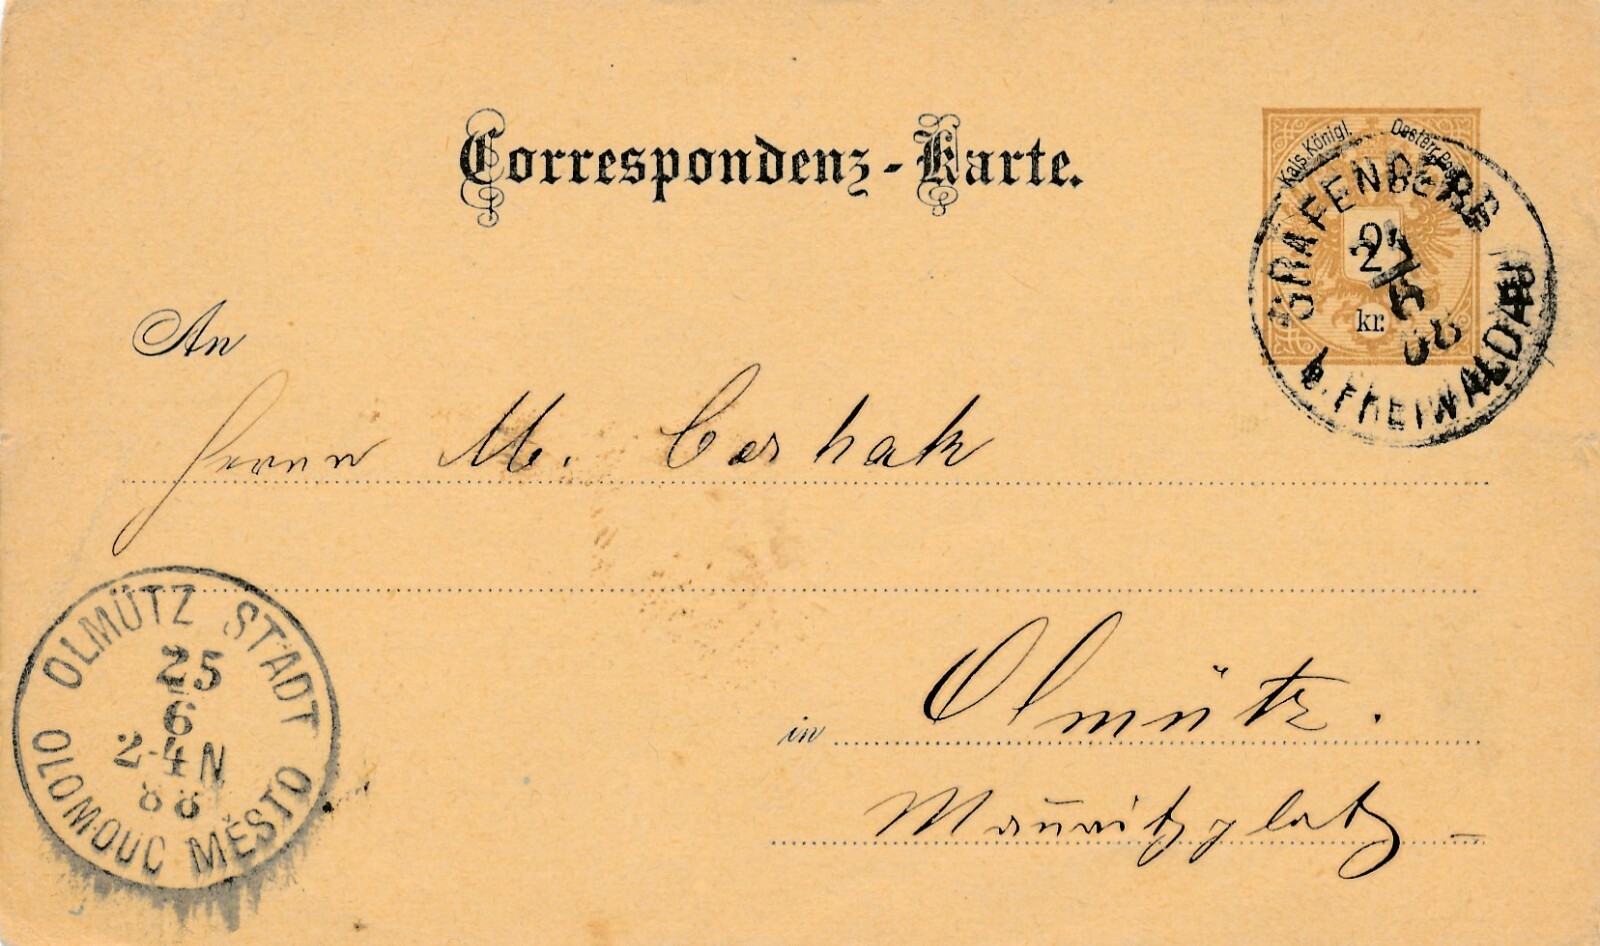 Correspondenz-Karte.
Kais. Königl. Oesterr. Post
2
kr.
GRÄFENBERG
24
6
88
b. FREIWALDAU
An
Herrn M.
in Olmütz.
Mauritzplatz
OLMÜTZ STADT
25
6
2-4 N
88
OLOMOUC MĚSTO